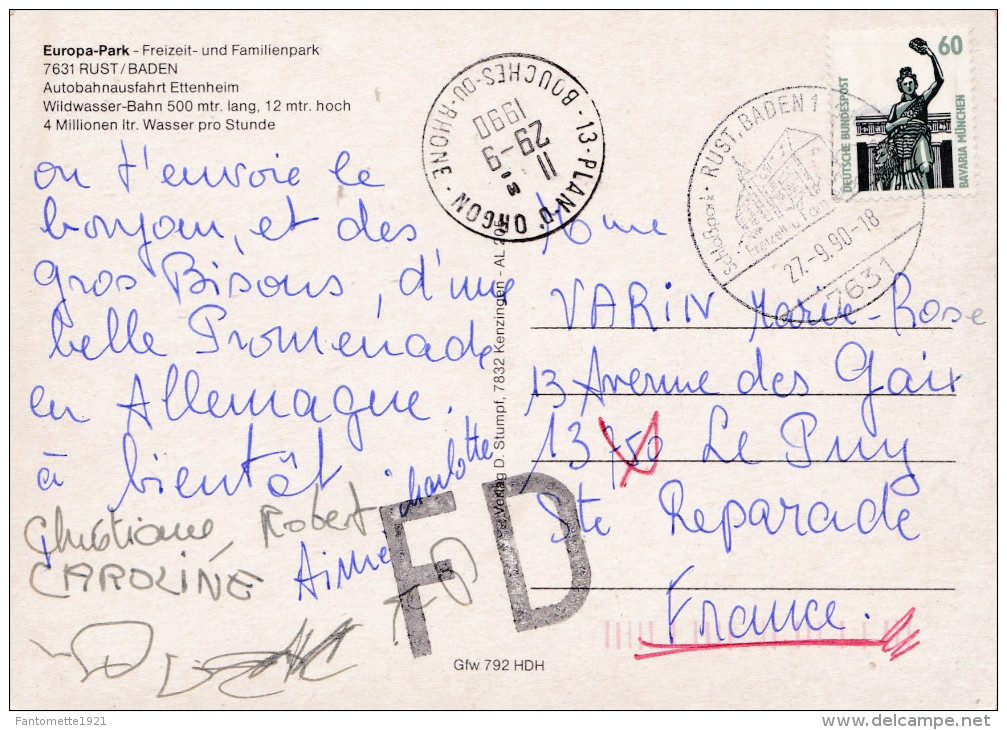 Europa-Park - Freizeit- und Familienpark
7631 RUST/BADEN
Autobahnausfahrt Ettenheim
Wildwasser-Bahn 500 mtr. lang, 12 mtr. hoch
4 Millionen ltr. Wasser pro Stunde
on t'envoie le
bonjour, et des
gros Bisous, d'une
belle Promenade
en Allemagne.
à bientôt
Christiane, Robert
CAROLINE
Aimé
charlotte
13-PLAN D'ORGON
BOUCHES-DU-RHONE
11
29-9
1990
Verlag D. Stumpf, 7832 Kenzingen - AL
FD
Gfw 792 HDH
60
DEUTSCHE BUNDESPOST
BAVARIA MÜNCHEN
RUST, BADEN 1
Schloßpark
Freizeit u. Fam
27.-9.90-18
7631
Mme
VARiN Marie-Rose
13 Avenue des Gaix
13 750 Le Puy
Ste Reparade
France.
Fantomette1921